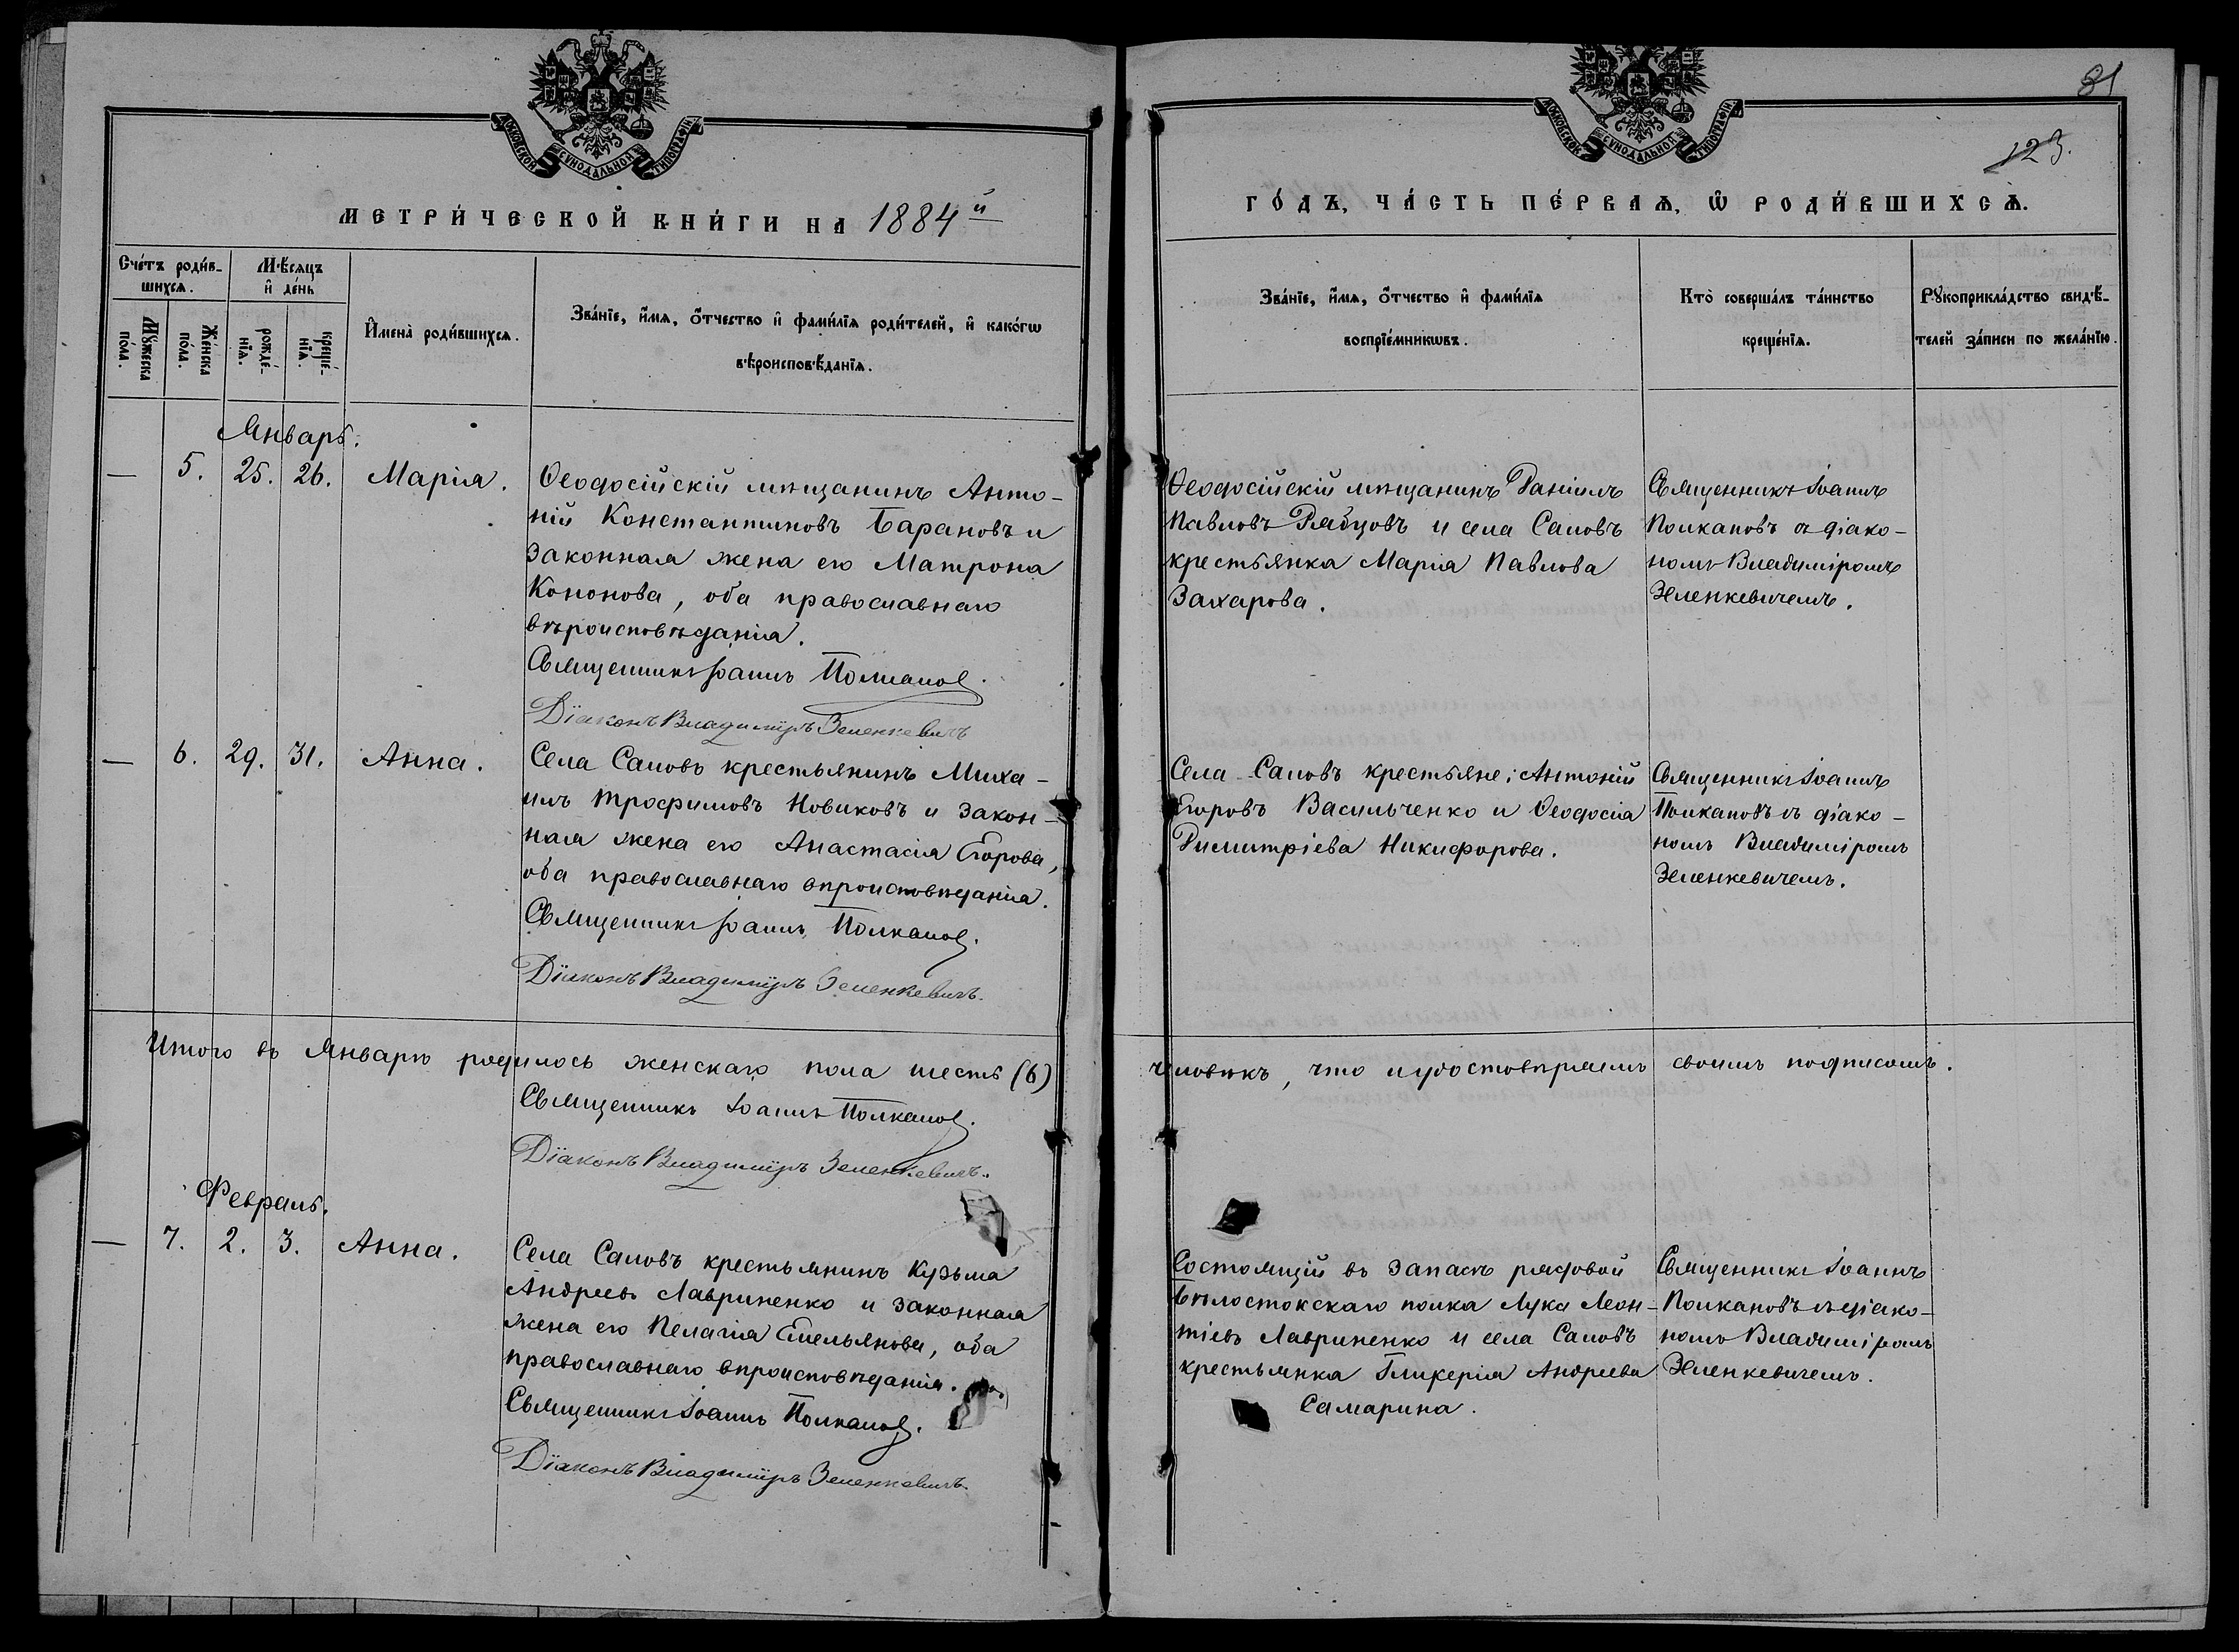 МОСКОВСКОЙ СѴНОДАЛЬНОЙ ТИПОГРАФІИ
МЕТРИ́ЧЕСКОЙ КНИ́ГИ НА 1884й
Сче́тъ роди́в-
шихсѧ.
Мѣ́сѧцъ
и҆ де́нь
Мꙋ́жеска
по́ла.
Же́нска
по́ла.
рожде́-
нїѧ.
креще́-
нїѧ.
И҆мена̀ роди́вшихсѧ.
Зва́нїе, и҆́мѧ, ѻ҆́тчество и҆ фами́лїѧ роди́телей, и҆ како́гѡ
вѣроисповѣ́данїѧ.
Январь.
— 5. 25. 26. Марія.
Ѳеодосійскій мѣщанинъ Анто-
ній Константиновъ Барановъ и
законная жена его Матрона
Кононова, оба православнаго
вѣроисповѣданія.
Священникъ Іоаннъ Полкановъ.
Діаконъ Владиміръ Зеленкевичъ
— 6. 29. 31. Анна.
Села Саловъ крестьянинъ Миха-
илъ Трофимовъ Новиковъ и закон-
ная жена его Анастасія Егорова,
оба православнаго вѣроисповѣданія.
Священникъ Іоаннъ Полкановъ.
Діаконъ Владиміръ Зеленкевичъ.
Итого въ Январѣ родилось женскаго пола шесть (6)
Священникъ Іоаннъ Полкановъ.
Діаконъ Владиміръ Зеленкевичъ.
Февраль.
— 7. 2. 3. Анна.
Села Саловъ крестьянинъ Кузьма
Андреевъ Лавриненко и законная
жена его Пелагія Емельянова, оба
православнаго вѣроисповѣданія.
Священникъ Іоаннъ Полкановъ.
Діаконъ Владиміръ Зеленкевичъ.
81
123.
МОСКОВСКОЙ СѴНОДАЛЬНОЙ ТИПОГРАФІИ
ГО́ДЪ, ЧА́СТЬ ПЕ́РВАѦ, Ѡ҆ РОДИ́ВШИХСѦ.
Зва́нїе, и҆́мѧ, ѻ҆́тчество и҆ фами́лїѧ
воспрїе́мникѡвъ.
Кто̀ соверша́лъ та́инство
креще́нїѧ.
Рꙋкоприкла́дство свидѣ́-
телей за́писи по жела́нїю.
Ѳеодосійскій мѣщанинъ Даніилъ
Павловъ Рябцовъ и села Саловъ
крестьянка Марія Павлова
Захарова.
Священникъ Іоаннъ
Полкановъ съ діако-
номъ Владиміромъ
Зеленкевичемъ.
Села Саловъ крестьяне: Антоній
Егоровъ Васильченко и Ѳеодосія
Димитріева Никифорова.
Священникъ Іоаннъ
Полкановъ съ діако-
номъ Владиміромъ
Зеленкевичемъ.
человѣкъ, что и удостовѣряемъ своимъ подписомъ.
Состоящій въ запасѣ рядовой
Бѣлостокскаго полка Лука Леон-
тіевъ Лавриненко и села Саловъ
крестьянка Гликерія Андреева
Самарина.
Священникъ Іоаннъ
Полкановъ съ діако-
номъ Владиміромъ
Зеленкевичемъ.